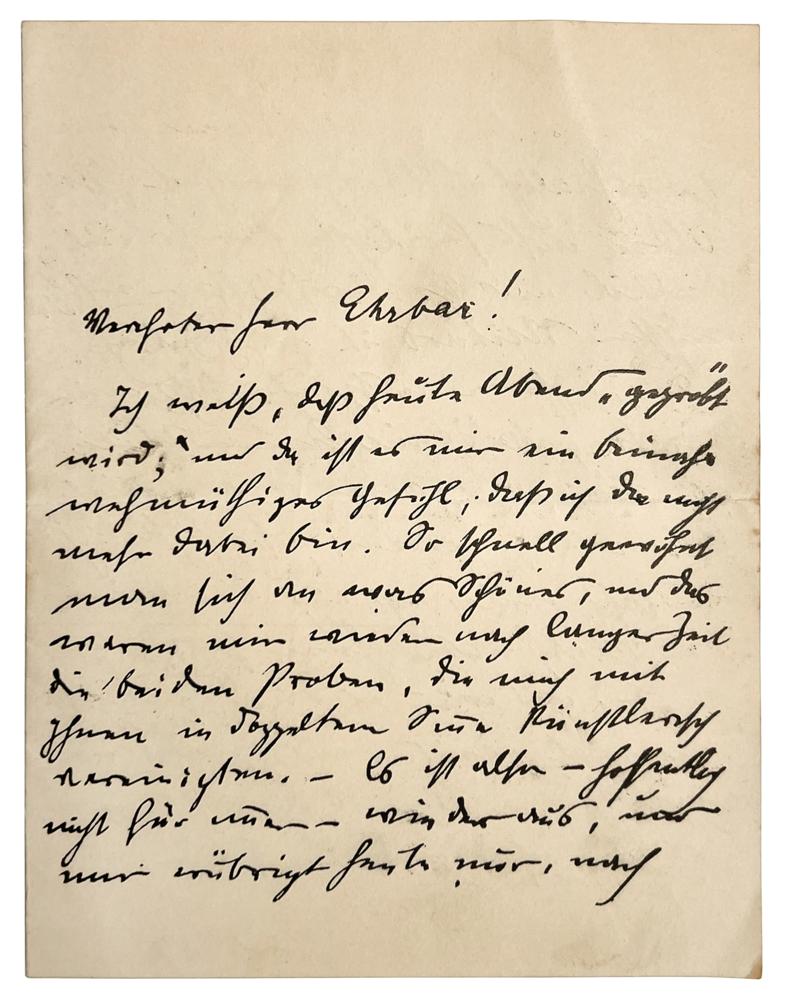 Verehrter Herr Ehrbar!
Ich weiß, daß heute Abend „geprobt
wird;“ und da ist es mir ein beinahe
wehmüthiges Gefühl, daß ich da nicht
mehr dabei bin. So schnell gewöhnt
man sich an was Schönes, und das
waren mir wieder nach langer Zeit
die beiden Proben, die mich mit
Ihnen in doppeltem Sinne künstlerisch
vereinigten. – Es ist also – hoffentlich
nicht für immer – wieder aus, und
mir erübrigt heute nur, nach